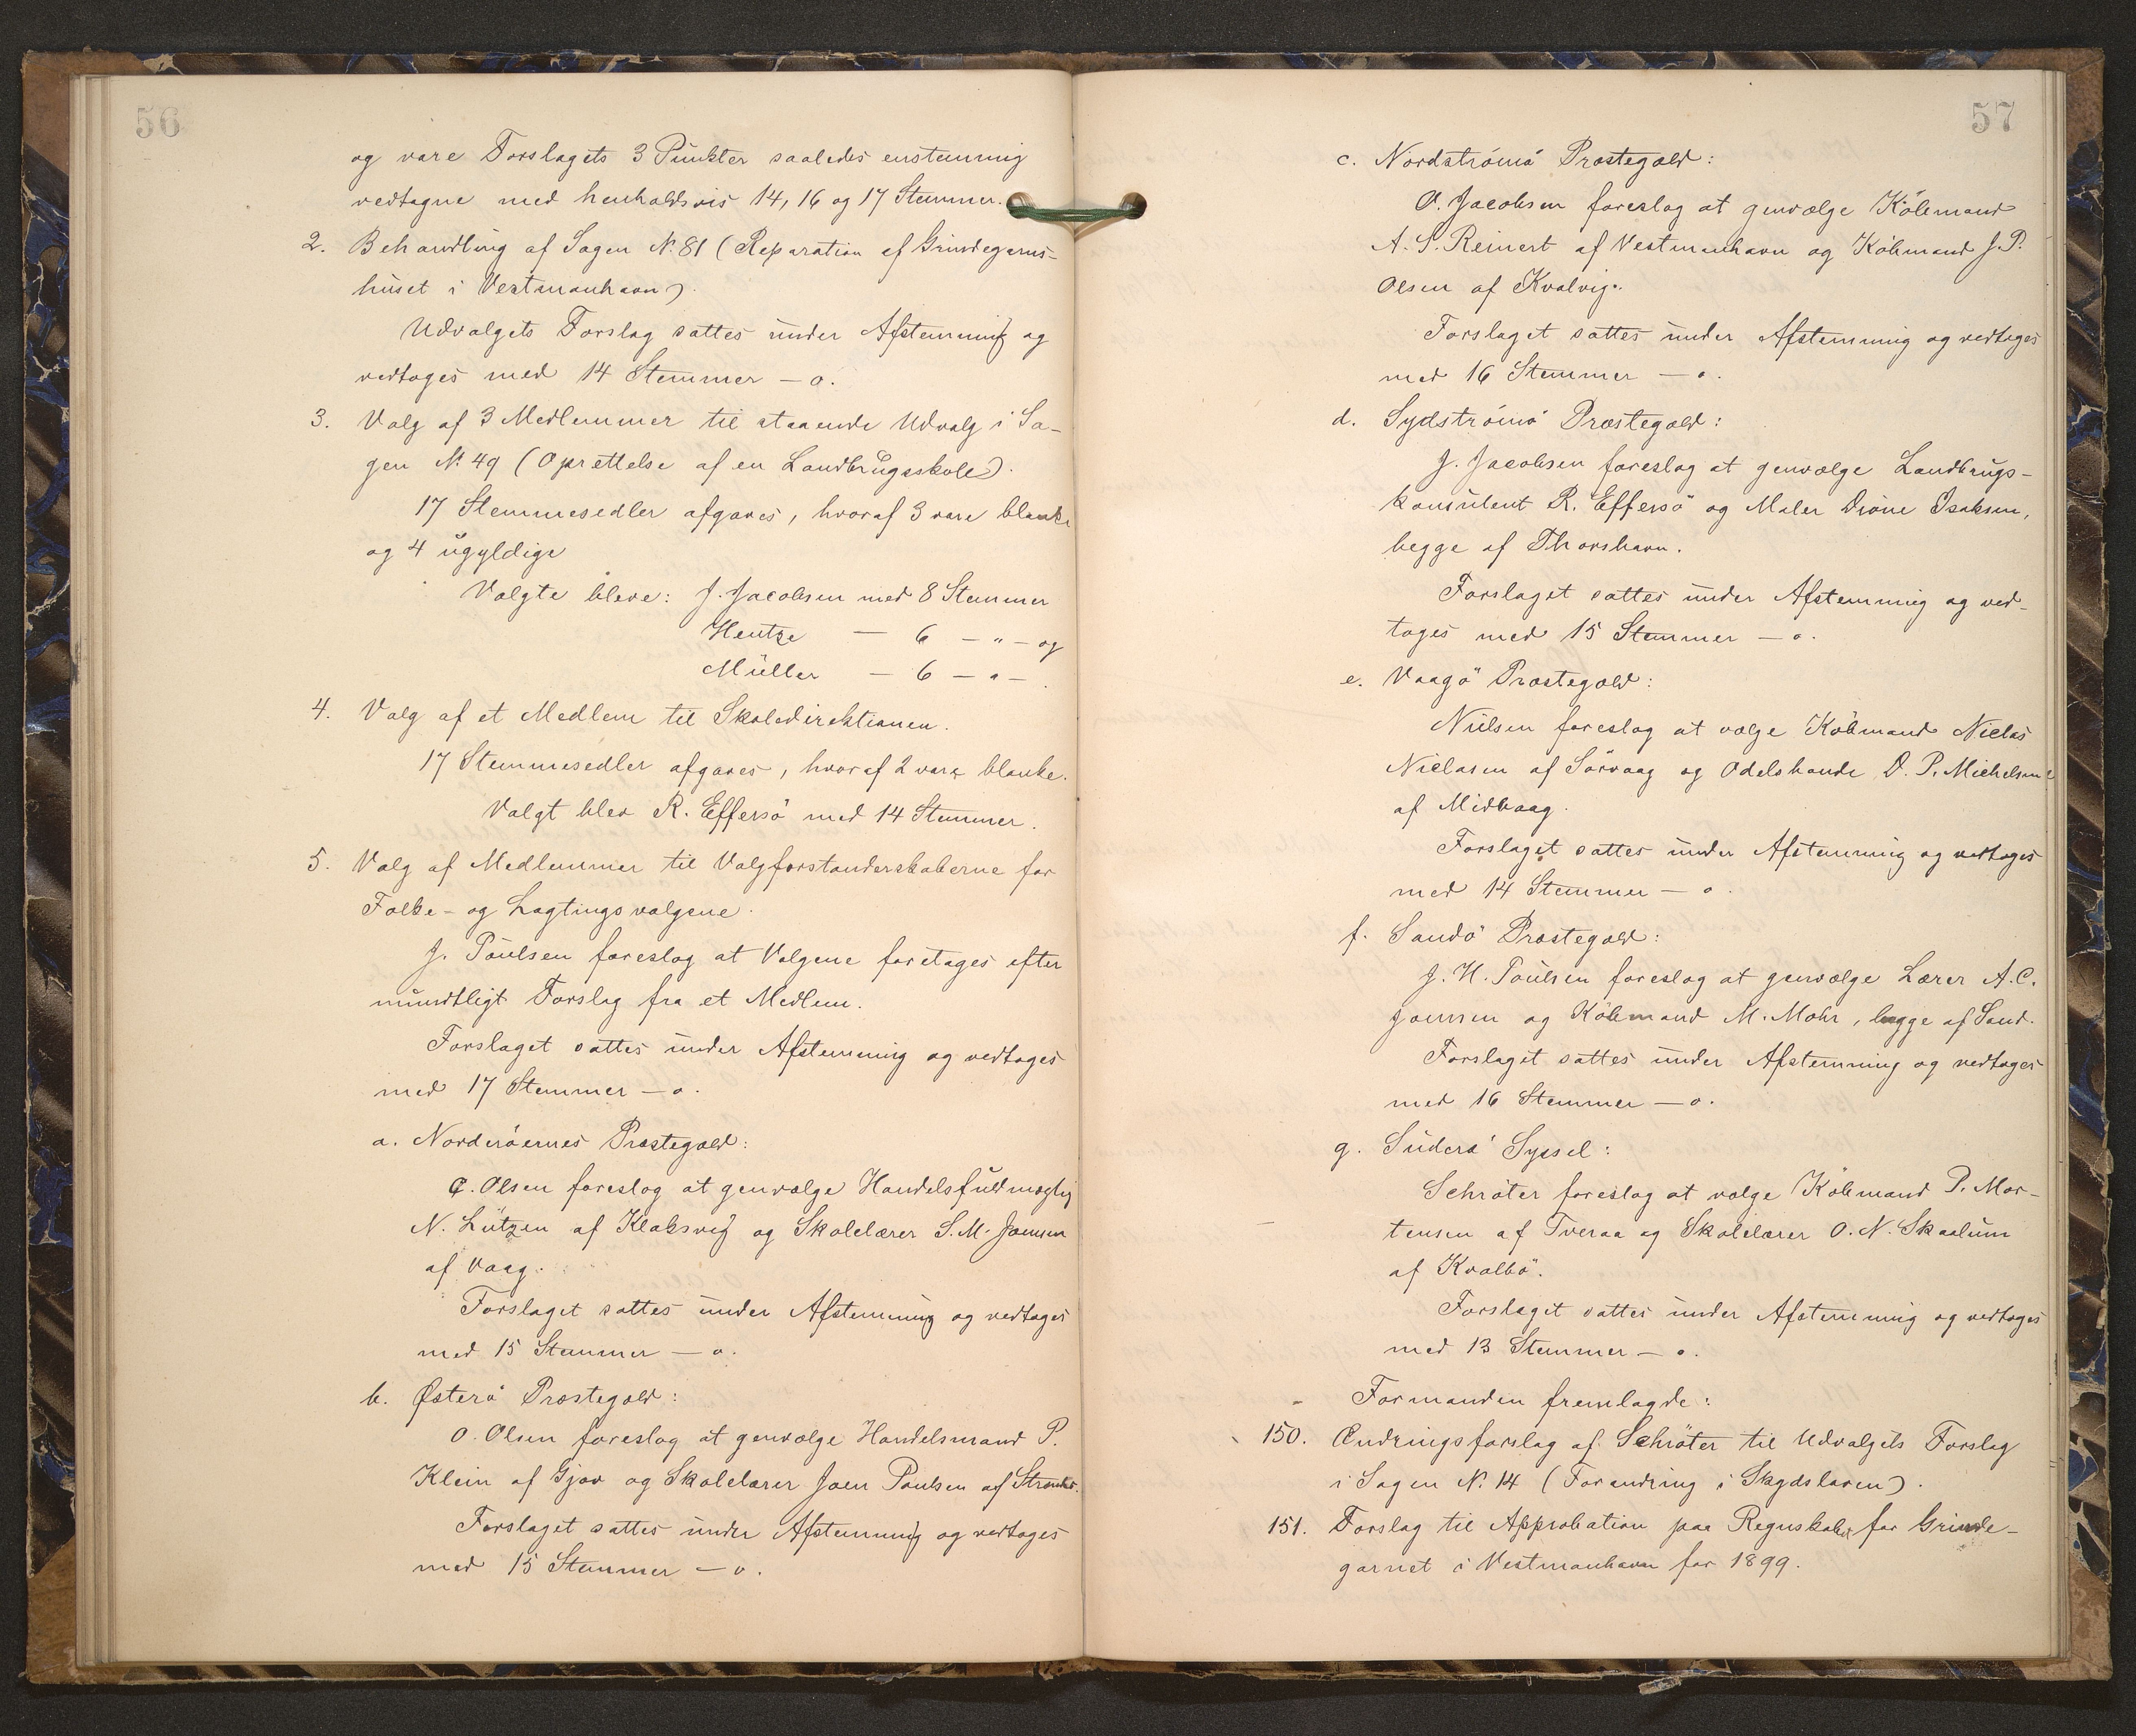 56
og vare Forslagets 3 Punkter saaledes enstemmig
vedtagne med henholdsvis 14, 16 og 17 Stemmer.
2. Behandling af Sagen N. 81 (Reparation af Grindegarns-
huset i Vestmanhavn).
Udvalgets Forslag sattes under Afstemning og
vedtoges med 14 Stemmer — o.
3. Valg af 3 Medlemmer til staaende Udvalg i Sa-
gen N. 49 (Oprettelse af en Landbrugsskole).
17 Stemmesedler afgaves, hvoraf 3 vare blanke
og 4 ugyldige
Valgte bleve: J. Jacobsen med 8 Stemmer
Hentze — 6 — " — og
Müller — 6 — " — .
4. Valg af et Medlem til Skoledirektionen.
17 Stemmesedler afgaves, hvoraf 2 vare blanke.
Valgt blev R. Effersö med 14 Stemmer.
5. Valg af Medlemmer til Valgforstanderskaberne for
Folke- og Lagtingsvalgene.
J. Poulsen foreslog at Valgene foretages efter
mundtligt Forslag fra et Medlem.
Forslaget sattes under Afstemning og vedtoges
med 17 Stemmer — o.
a. Norderöernes Præstegæld:
C. Olsen foreslog at genvælge Handelsfuldmægtig
N. Lützen af Klaksvig og Skolelærer S. M. Joensen
af Vaag.
Forslaget sattes under Afstemning og vedtoges
med 15 Stemmer — o.
b. Østerö Præstegæld:
O. Olsen foreslog at genvælge Handelsmand P.
Klein af Gjov og Skolelærer Joen Poulsen af Strender.
Forslaget sattes under Afstemning og vedtoges
med 15 Stemmer — o.
57
c. Nordströmö Præstegæld:
O. Jacobsen foreslog at genvælge Köbmand
A. S. Reinert af Vestmanhavn og Köbmand J. P.
Olsen af Kvalvig.
Forslaget sattes under Afstemning og vedtoges
med 16 Stemmer — o.
d. Sydströmö Præstegæld:
J. Jacobsen foreslog at genvælge Landbrugs-
konsulent R. Effersö og Maler Dione Isaksen,
begge af Thorshavn.
Forslaget sattes under Afstemning og ved-
toges med 15 Stemmer — o.
e. Vaagö Præstegæld:
Nielsen foreslog at vælge Köbmand Niclas
Niclasen af Sörvaag og Odelsbonde D. P. Michelsen
af Midvaag.
Forslaget sattes under Afstemning og vedtoges
med 14 Stemmer — o.
f. Sandö Præstegæld:
J. H. Poulsen foreslog at genvælge Lærer A. C.
Joensen og Köbmand M. Mohr, begge af Sand.
Forslaget sattes under Afstemning og vedtoges
med 16 Stemmer — o.
g. Suderö Syssel:
Schröter foreslog at vælge Köbmand P. Mor-
tensen af Tveraa og Skolelærer O. N. Skaalum
af Kvalbö.
Forslaget sattes under Afstemning og vedtoges
med 13 Stemmer — o.
Formanden fremlagde:
150. Ændringsforslag af Schröter til Udvalgets Forslag
i Sagen N. 14 (Forandring i Skydsloven).
151. Forslag til Approbation paa Regnskabet for Grinde-
garnet i Vestmanhavn for 1899.